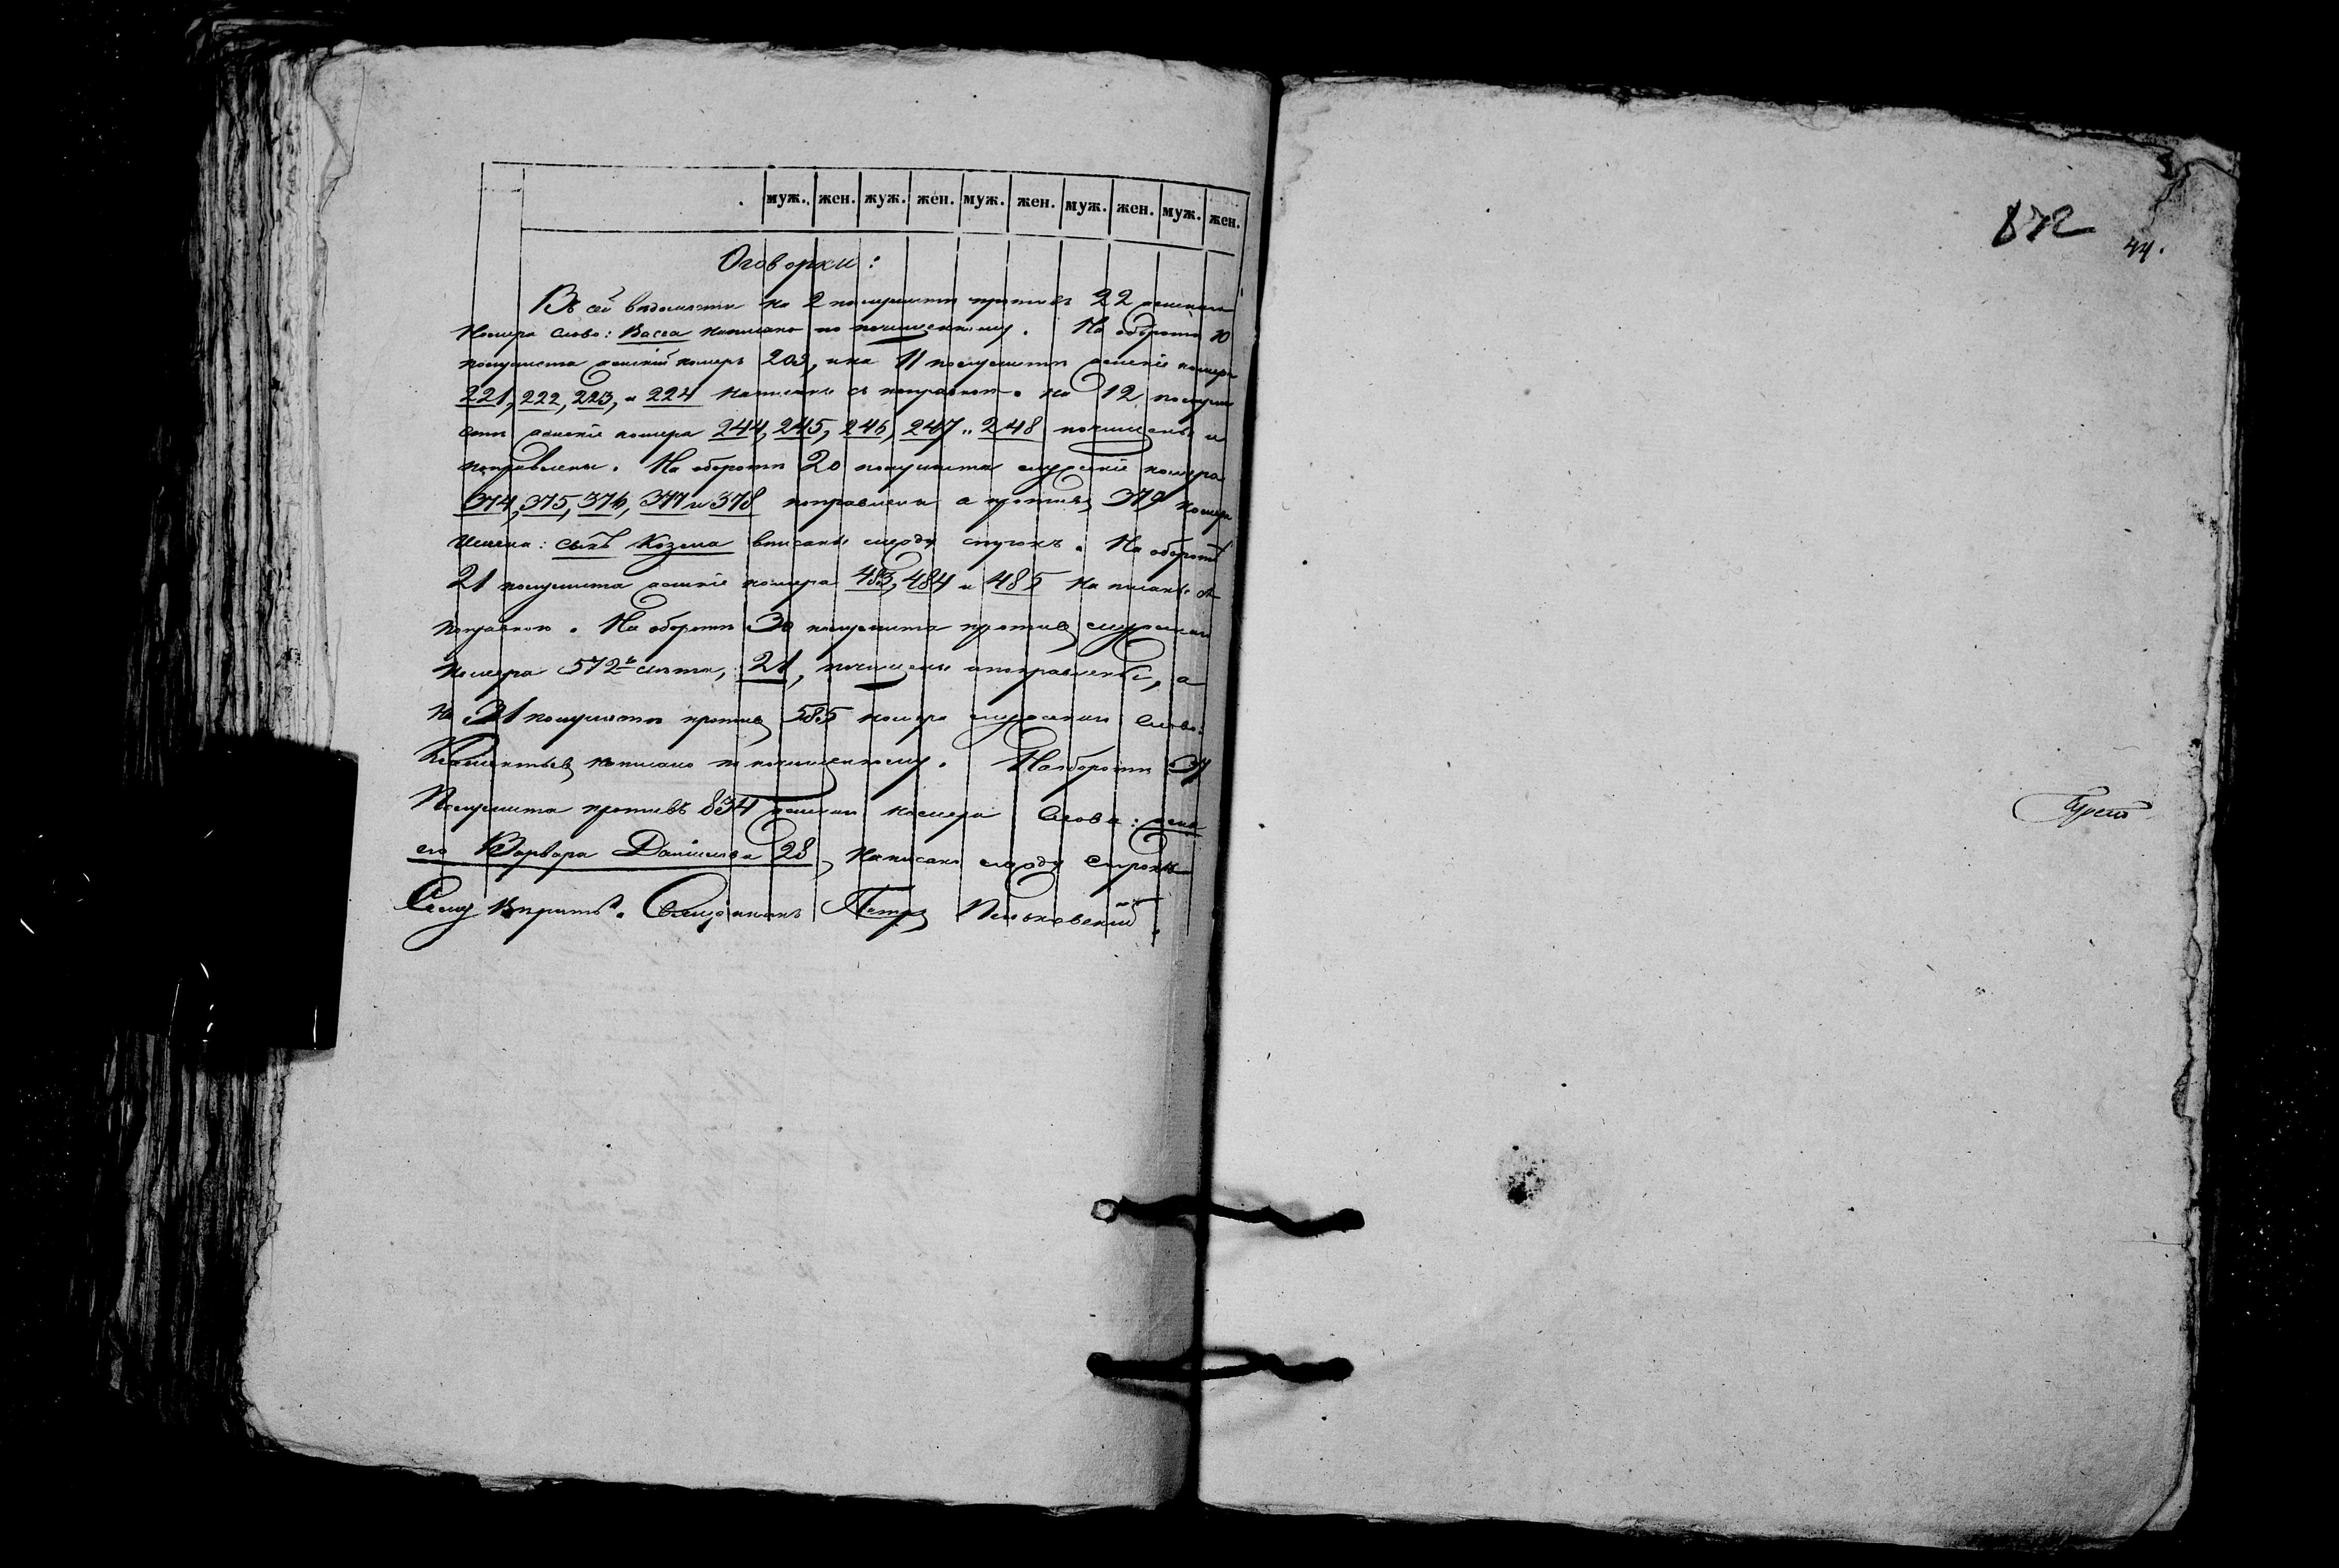 муж. жен. жуж. жен. муж. жен. муж. жен. муж. жен.
Оговорки:
Въ сей вѣдомости на 2 полулистѣ противъ 22 женскаго
номера слово: Васса написано по почищенному. На оборотѣ 10
полулиста женскій номеръ 203, и на 11 полулистѣ женскіе номера
221, 222, 223, и 224 написаны съ поправкою. на 12 полули
стѣ женскіе номера 244, 245, 246, 247 и 248 почищены и
поправлены. На оборотѣ 20 полулиста мужскіе номера
374, 375, 376, 377 и 378 поправлены а противъ 379 номера
сынъ Козма вписаны между строкъ. На оборотѣ
21 полулиста женскіе номера 483, 484 и 485 написаны съ
поправкою. На оборотѣ 30 полулиста противъ мужскаго
номера 572 лѣта, 21, почищены и поправлены, а
на 31 полулистѣ противъ 585 номера мужскаго слово:
написано по почищенному. На оборотѣ 37
Полулиста противъ 834 женскаго номера слова: жена
его Варвара Данилова 28, написано между строкъ
Сему вѣрить. Священникъ Петръ Пеньковскій.
872
44.